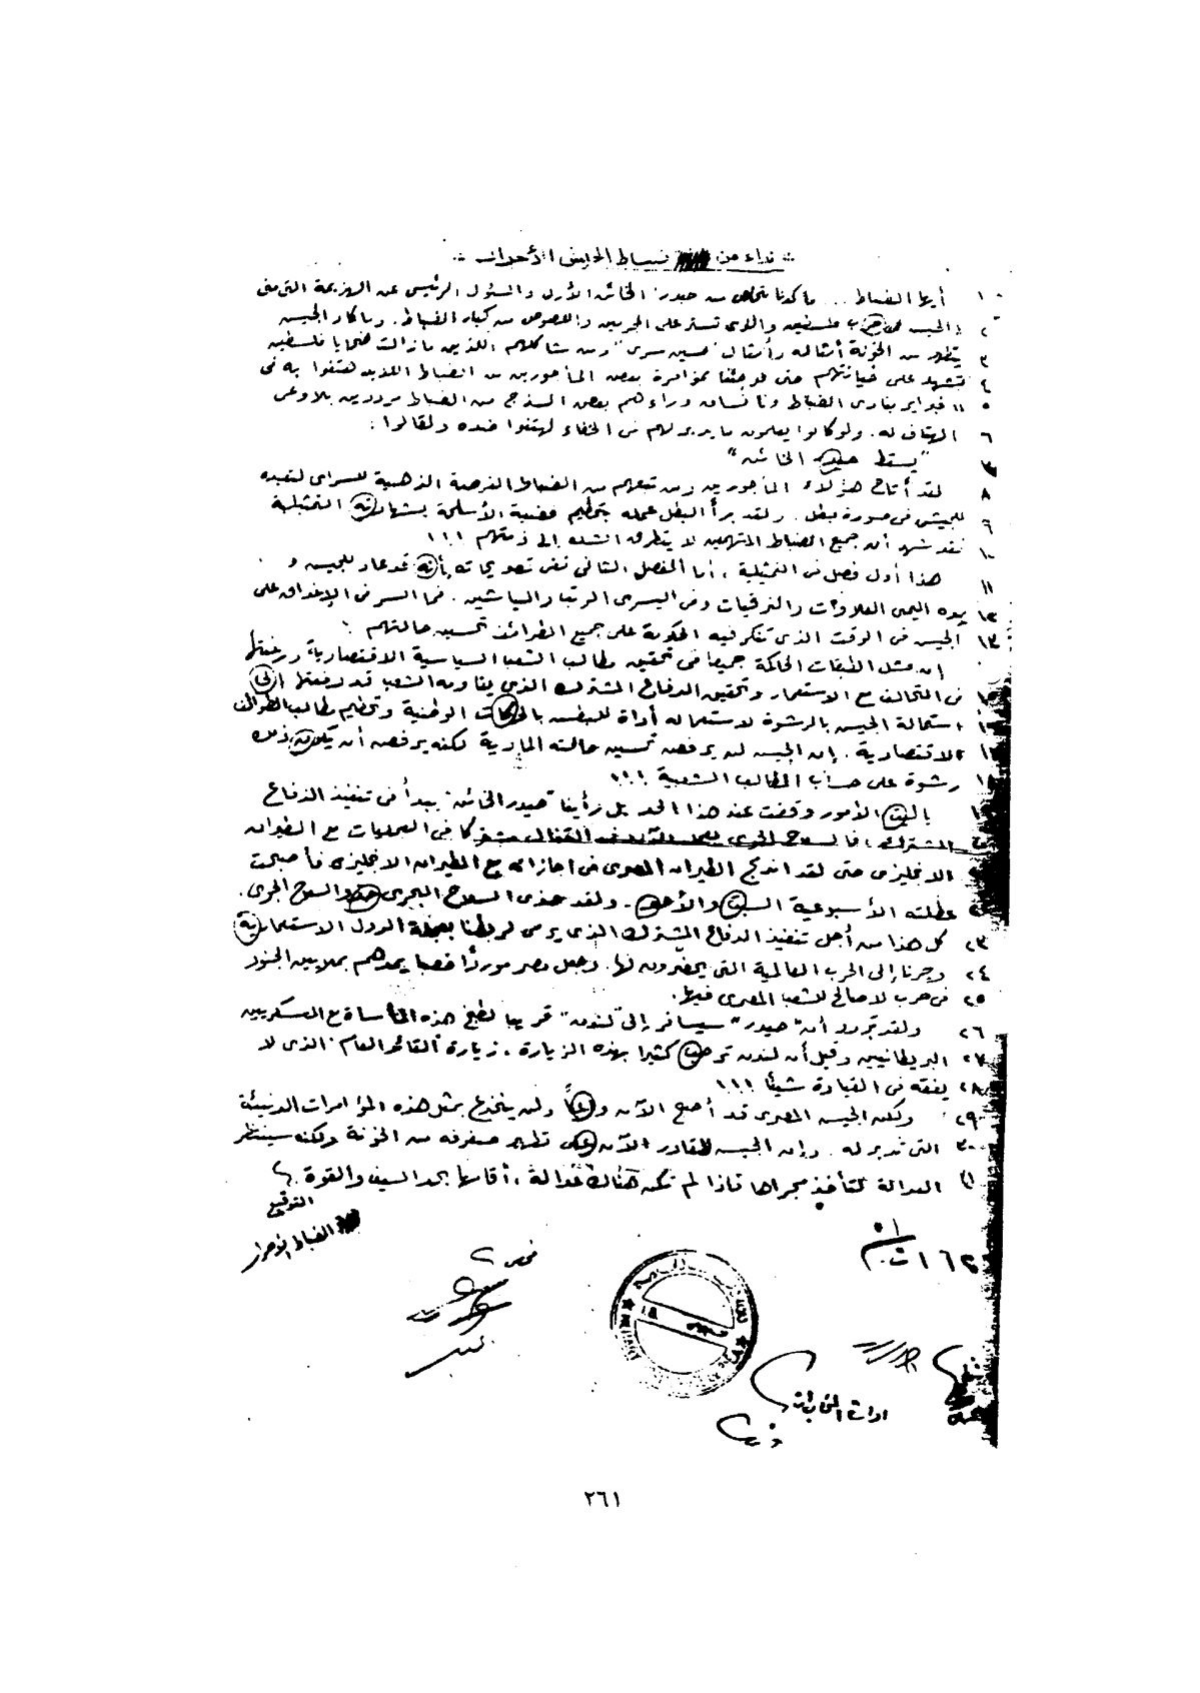 نداء من ضباط الجيش الأحرار
١ أيها الضباط .. ما كدنا نتخلص من حيدر الخائن الأول والمسئول الرئيسي عن الهزيمة التي مني
٢ الجيش في حرب فلسطين والذي تستر على المجرمين واللصوص من كبار الضباط. وما كاد الجيش
٣ يتطهر من الخونة أمثاله وأمثال "حسين سري" ومن شاكلهم اللذين ما زالت ضحايا فلسطين
٤ تشهد على خيانتهم حتى فوجئنا بمؤامرة بعض المأجورين من الضباط اللذين هتفوا به في
٥ ١١ فبراير بنادي الضباط وانساق وراءهم بعض السذج من الضباط مرددين بلا وعي
٦ الهتاف له. ولو كانوا يعلمون ما يدبر لهم في الخفاء لهتفوا ضده ولقالوا:
٧ "يسقط حيدر الخائن"
٨ لقد أتاح هؤلاء المأجورين ومن تبعهم من الضباط الفرصة الذهبية للسراي لتعيده
٩ للجيش في صورة بطل. ولقد برأ البطل عمله بتحطيم قضية الأسلحة بشهادته التمثيلية
١٠ فقد شهد أن جميع الضباط المتهمين لا يتطرق الشك إلى ذمتهم !!!
١١ هذا أول فصل في التمثيلية، أما الفصل الثاني ففي تصريحاته بأنه قد عاد للجيش و
١٢ بيده اليمنى العلاوات والترقيات وفي اليسرى الرتب والنياشين. فما السر في الإغداق على
١٣ الجيش في الوقت الذي تفكر فيه الحكومة على جميع الطوائف تحسين حالتهم؟
إن فشل الطبقات الحاكمة جميعا في تحقيق مطالب الشعب السياسية الاقتصادية ورغبتها
في التحالف مع الاستعمار وتحقيق الدفاع المشترك الذي يقاومه الشعب قد دفعتها إلى
استمالة الجيش بالرشوة لاستعماله أداة للبطش بالحركات الوطنية وتحطيم مطالب الطوائف
الاقتصادية. إن الجيش لن يرفض تحسين حالته المادية لكنه يرفض أن يكون ذلك
رشوة على حساب المطالب الشعبية !!!
ياليت الأمور وقفت عند هذا الحد بل رأينا "حيدر الخائن" يبدأ في تنفيذ الدفاع
المشترك، فالسلاح الجوي في العمليات مع الطيران
الانجليزي حتى لقد اندمج الطيران المصري في اجازاته مع الطيران الانجليزي فأصبحت
عطلته الأسبوعية السبت والأحد. ولقد حذى السلاح البحري حذو السلاح الجوي.
٢٣ كل هذا من أجل تنفيذ الدفاع المشترك الذي يرمي لربطنا بعجلة الدول الاستعمارية
٢٤ وجرنا إلى الحرب العالمية التي يحضرون لها. وجعل مصر موردا خصبا يمدهم بملايين الجنود
٢٥ في حرب لا صالح للشعب المصري فيها.
٢٦ ولقد تقرر أن "حيدر" سيسافر إلى "لندن" قريبا لطبخ هذه المأساة مع العسكريين
٢٧ البريطانيين وقيل أن لندن ترحب كثيرا بهذه الزيارة، زيارة القائد العام الذي لا
٢٨ يفقه في القيادة شيئا !!!
٢٩ ولكن الجيش المصري قد أصبح الآن واعيا ولن ينخدع بمثل هذه المؤامرات الدنيئة
٣٠ التي تدبر له. وإن الجيش لقادر الآن على تطهير صفوفه من الخونة ولكنه سينتظر
العدالة لتأخذ مجراها فإذا لم تكن هناك عدالة، أقامها بحد السيف والقوة.
التوقيع
الضباط الأحرار
ادارة المخابرات
٢٦١